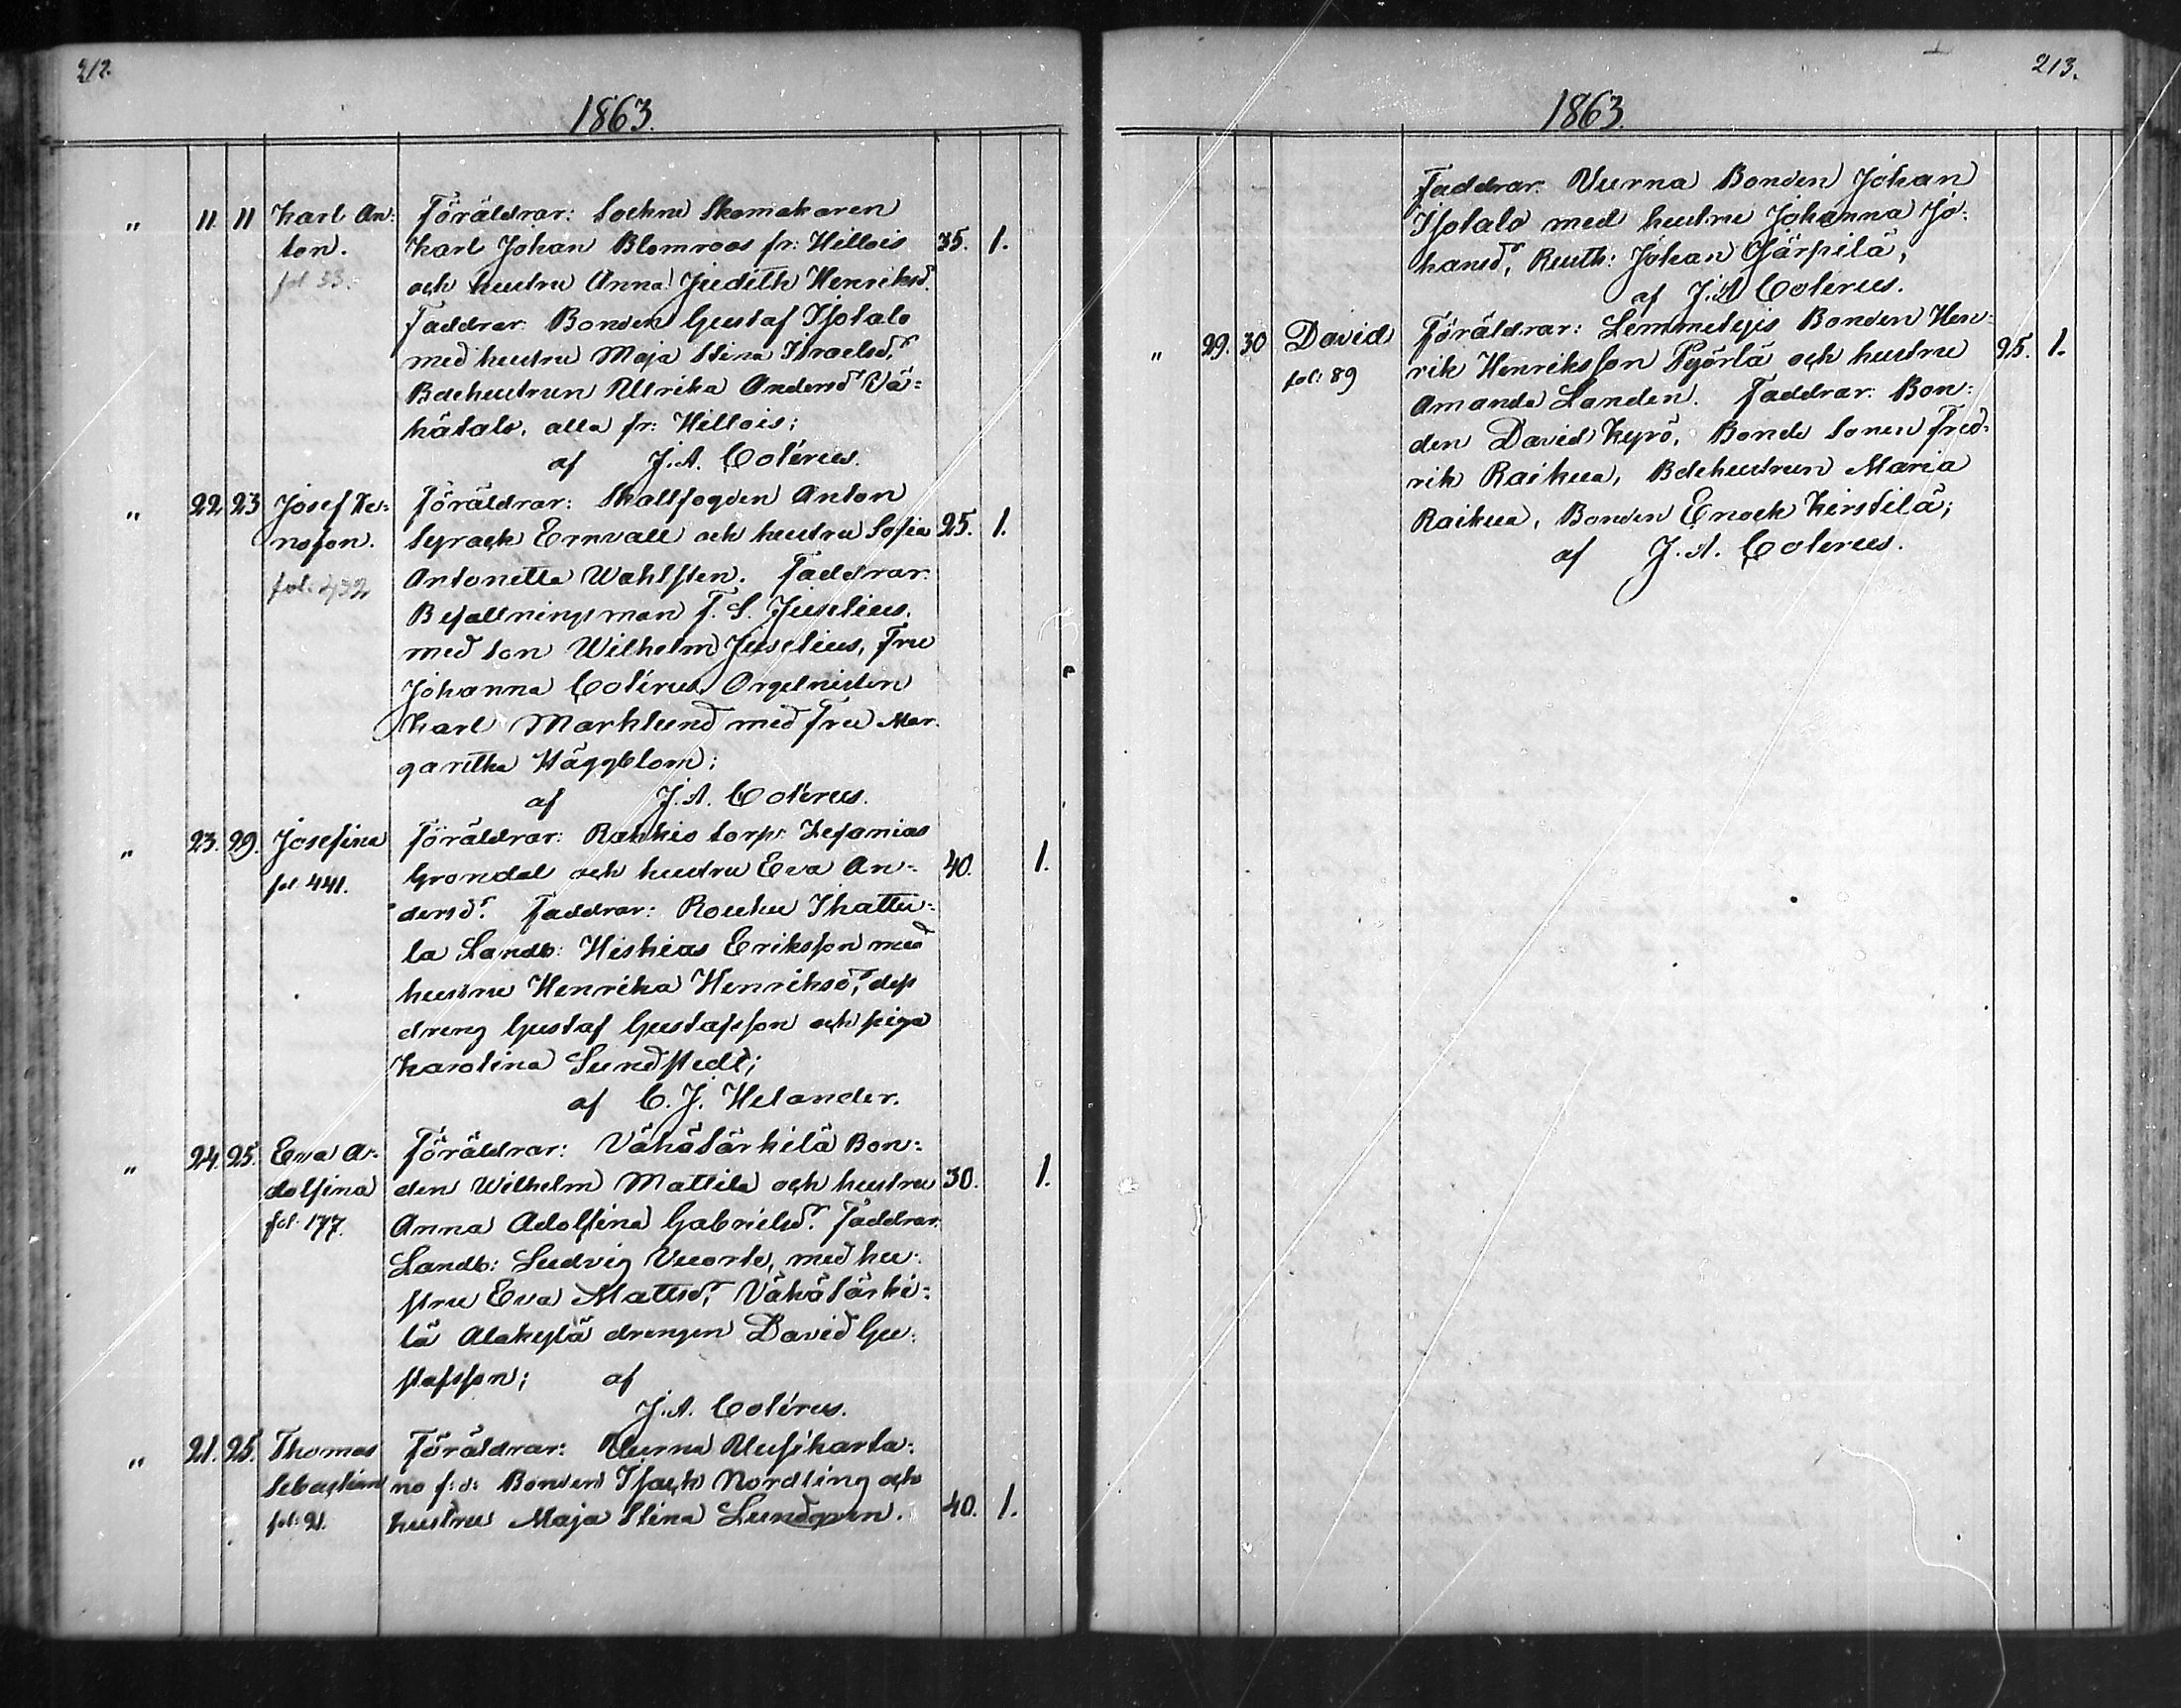 212.
1863.
" 11 11 Karl An: Föräldrar: Sockne Skomakaren
ton. Karl Johan Blomroos fr: Hillois 35. 1.
fol 53. och hustru Anna Judith Henriksd.r
Faddrar. Bonden Gustaf Isotalo
med hustru Maja Stina Israelsd.r
Bdehustrun Ulrika Andersd.r Vä:
hätalo, alla fr: Hillois;
af J. A. Colérus.
" 22 23 Josef Ke: Föräldrar: Skallfogden Anton
nofon. Syrach Ernvall och hustru Sofia 25. 1.
Antonetta Wahlsten. Faddrar.
Befallningsman F. S. Juselius,
med son Wilhelm Juselius, Fru
Johanna Colérus, Orgelnisten
Karl Marklund med Fru Mar:
garetha Häggblom;
af J. A. Colérus.
" 23. 29. Josefina Föräldrar: Rahkio torp: Zefanias
fol. 441. Grondal och hustru Eva An: 40. 1.
dersd.r Faddrar: Rouhu Ihattu:
la Landb: Hiskias Eriksson med
hustru Henrika Henriksd.r, dess
dreng Gustaf Gustafsson och piga
Karolina Sundstedt;
af C. J. Helander.
" 24. 25. Eva A: Föräldrar: Vähäsärkilä Bon:
dolfina den Wilhelm Mattila och hustru 30. 1.
fol. 177. Anna Adolfina Gabrielsd.r Faddrar.
Landb: Ludvig Vuorte, med hu:
stru Eva Mattsd.r, Vähäsärki:
lä Alakylä drengen David Gu:
stafsson; af
J. A. Colérus.
" 21. 25. Thomas Föräldrar: Uurna Uusikarta:
Sebastian no f: d: Bonden Isack Nordling och
fol: 21. hustru Maja Stina Lundgren. 40. 1.
213.
1863.
Faddrar. Uurna Bonden Johan
Isotalo med hustru Johanna Jo:
hansd.r, Rusth: Johan Ojärpilä,
af J. A. Colerus.
" 29. 30 David Föräldrar: Lemmetyis Bonden Hen:
fol: 89 rik Henriksson Pyörlä och hustru 25. 1.
Amanda Landen. Faddrar. Bon:
den David Kyrö, Bonde Sonen Fred:
rik Raikua, Bdehustrun Maria
Raikua, Bonden Enoch Kirstilä;
af J. A. Colerus.